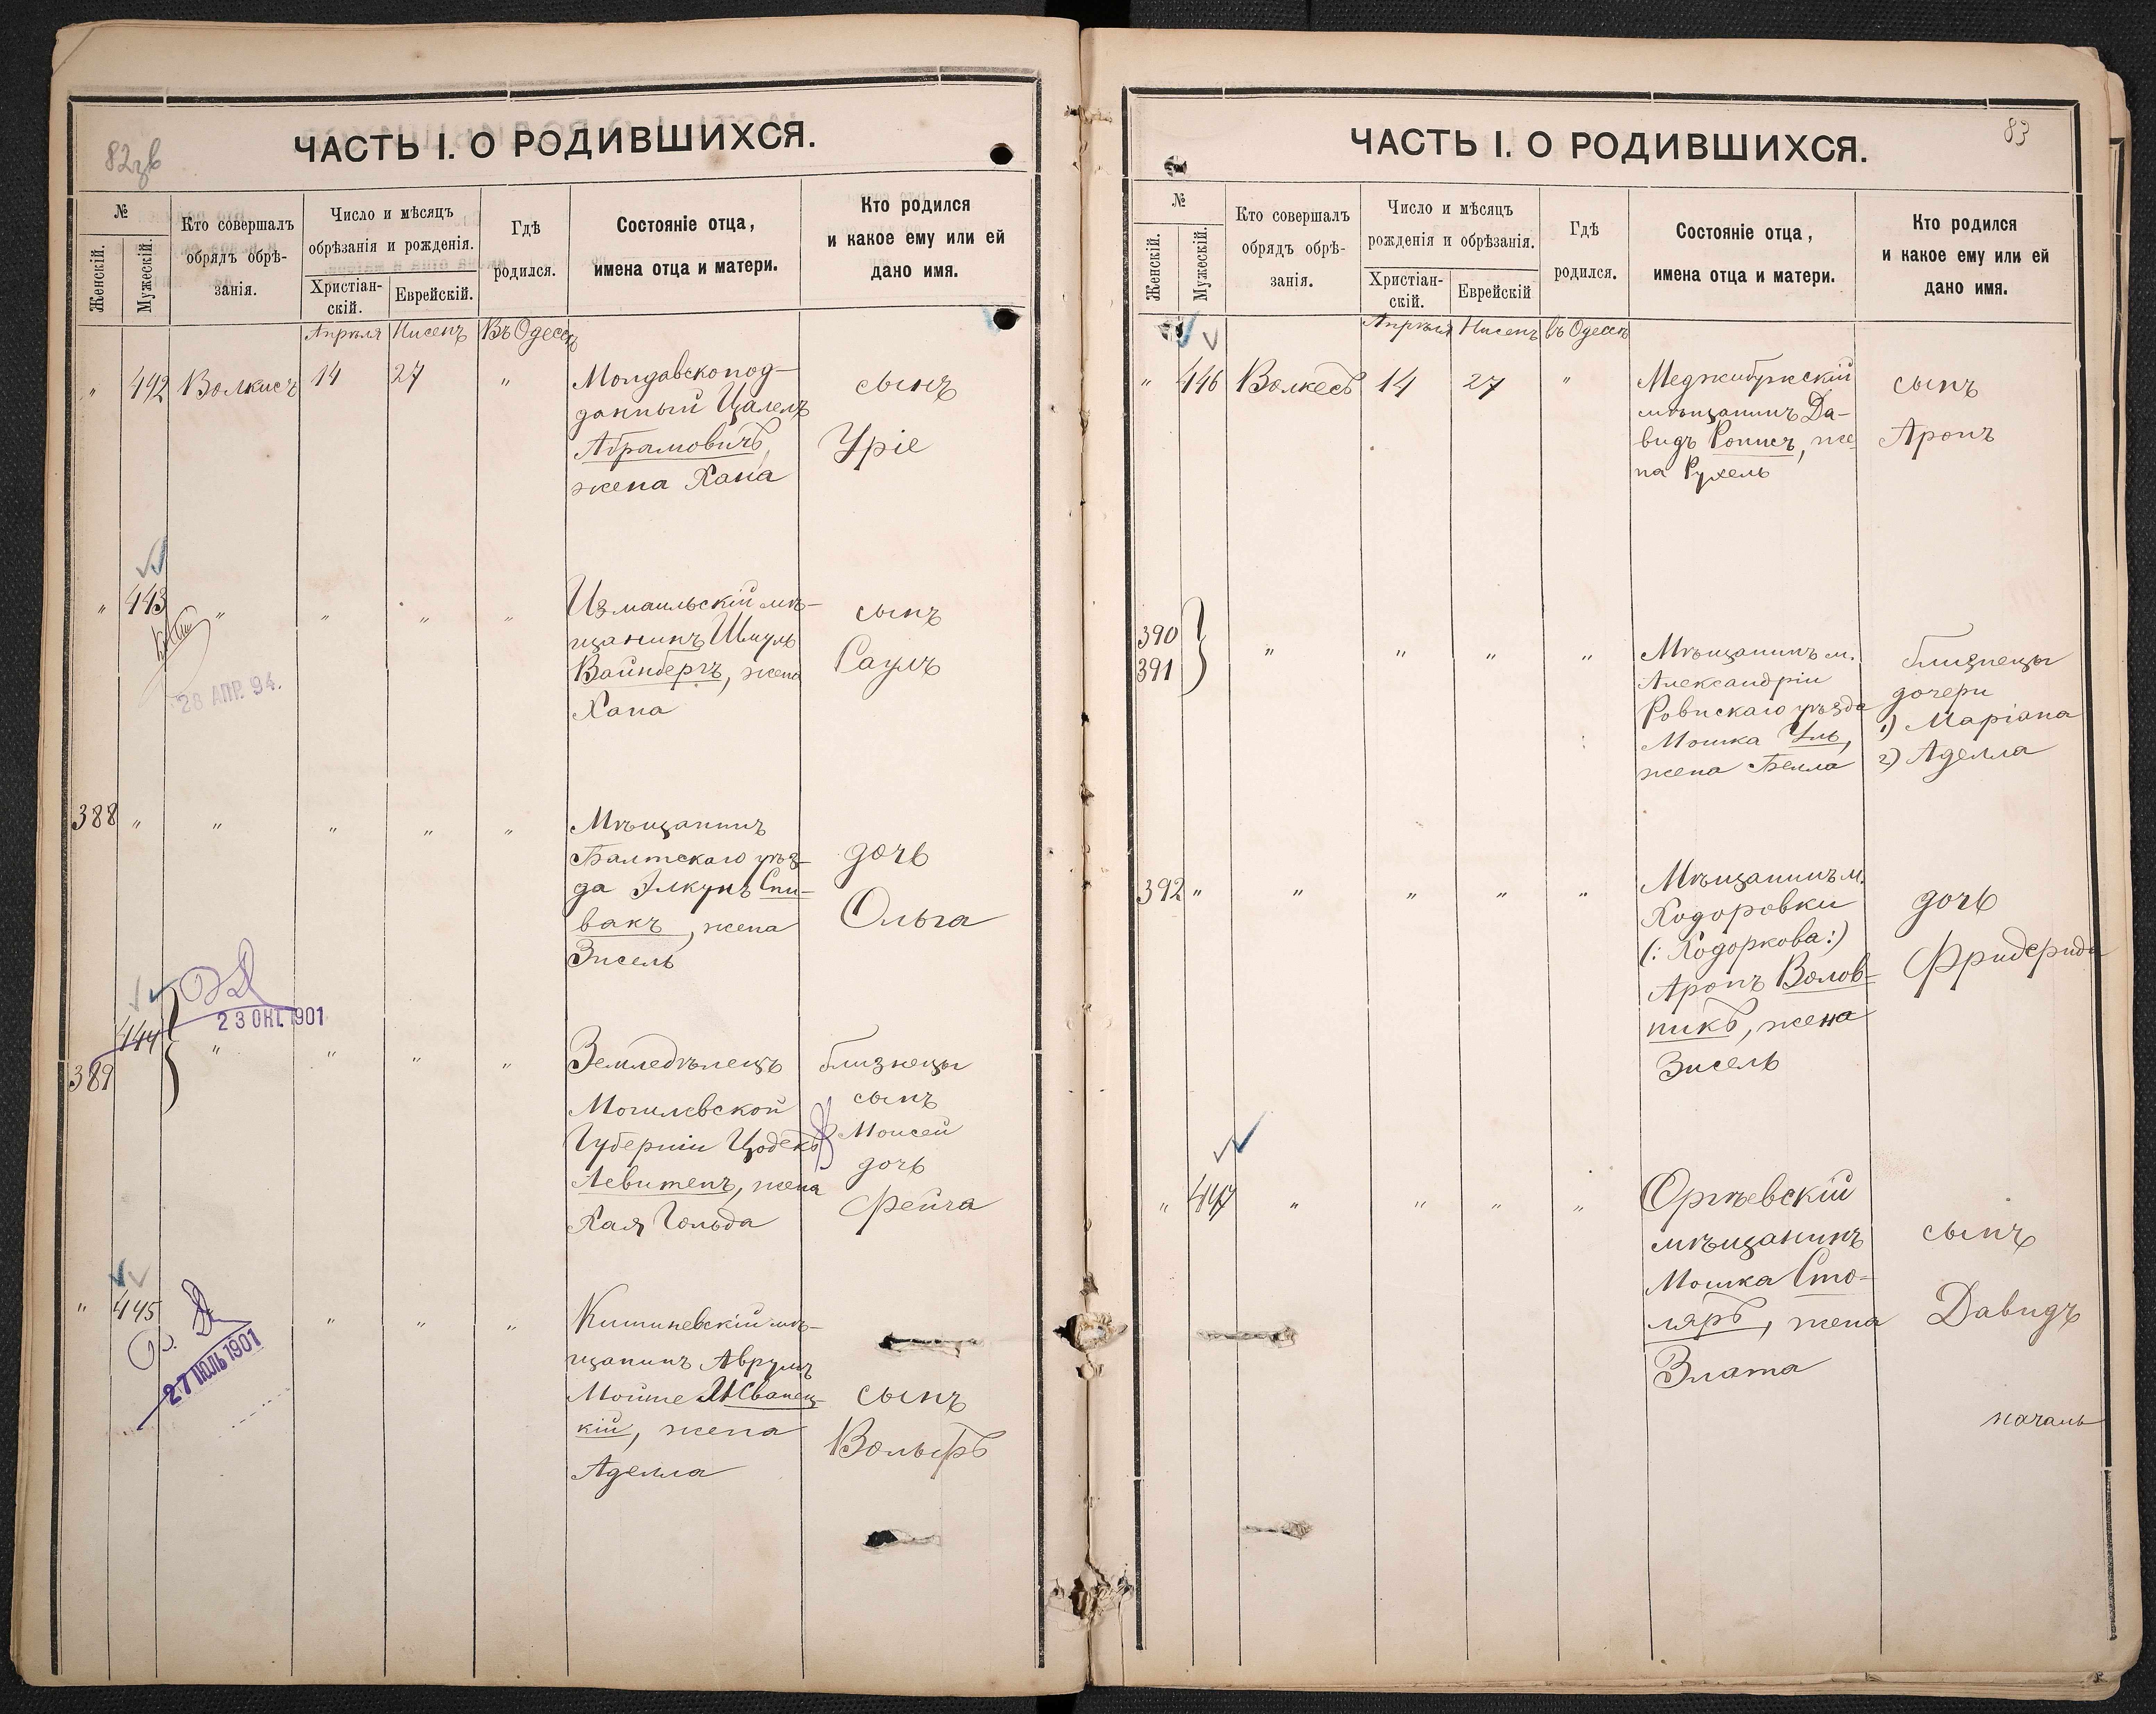 82 зв
ЧАСТЬ I. О РОДИВШИХСЯ.
№
Женскій.
Мужескій.
Кто совершалъ
обрядъ обрѣ-
занія.
Число и мѣсяцъ
обрѣзанія и рожденія.
Христіан-
скій.
Еврейскій.
Гдѣ
родился.
Состояніе отца,
имена отца и матери.
Кто родился
и какое ему или ей
дано имя.
Апрѣля Нисенъ Въ Одессѣ
" 442 Волкисъ 14 27 "
Молдавскопод-
данный Цалелъ
Абрамовичъ,
жена Хана
сынъ
Уріе
" 443 " " " "
28 АПР. 94.
Измаильскій мѣ-
щанинъ Шмуль
Вайнбергъ, жена
Хана
сынъ
Саулъ
388 " " " " "
Мѣщанинъ
Балтскаго уѣз-
да Элкунъ Спи-
вакъ, жена
Зисель
дочь
Ольга
23 ОКТ. 1901
444
389 " " " "
Земледѣлецъ
Могилевской
Губерніи Цодекъ
Левитенъ, жена
Хая Гольда
близнецы
сынъ
Моисей
дочь
Фейга
" 445 " " "
27 ІЮЛЬ 1901
Кишиневскій мѣ-
щанинъ Аврумъ
Мойше Жванец-
кій, жена
Аделла
сынъ
Вольфъ
83
ЧАСТЬ I. О РОДИВШИХСЯ.
№
Женскій.
Мужескій.
Кто совершалъ
обрядъ обрѣ-
занія.
Число и мѣсяцъ
рожденія и обрѣзанія.
Христіан-
скій.
Еврейскій
Гдѣ
родился.
Состояніе отца,
имена отца и матери.
Кто родился
и какое ему или ей
дано имя.
Апрѣля Нисенъ въ Одессѣ
" 446 Волкесъ 14 27 "
Меджибужскій
мѣщанинъ Да-
видъ Ронисъ, же-
на Рухель
сынъ
Аронъ
390
391 " " " "
Мѣщанинъ м.
Александріи
Ровнскаго уѣзда
Мошка Уль,
жена Белла
близнецы
дочери
1) Маріана
2) Аделла
392 " " " " "
Мѣщанинъ м.
Ходоровки
(: Ходоркова :)
Аронъ Волов-
никъ, жена
Зисель
дочь
Фридерида
" 447 " " " "
Оргѣевскій
мѣщанинъ
Мошка Сто-
ляръ, жена
Злата
сынъ
Давидъ